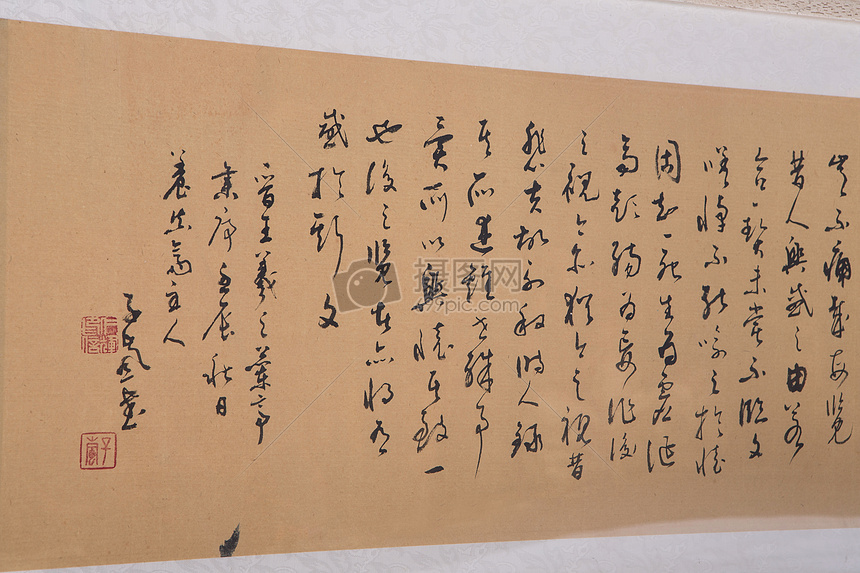 豈不痛哉每覽
昔人興感之由若
合一契未嘗不臨文
嗟悼不能喻之於懷
固知一死生為虛誕
齊彭殤為妄作後
之視今亦猶今之視昔
悲夫故列敘時人錄
其所述雖世殊事
異所以興懷其致一
也後之覽者亦將有
感於斯文
晉王羲之蘭亭
集序辰秋日
養齋主人
子書
摄图网
699pic.com